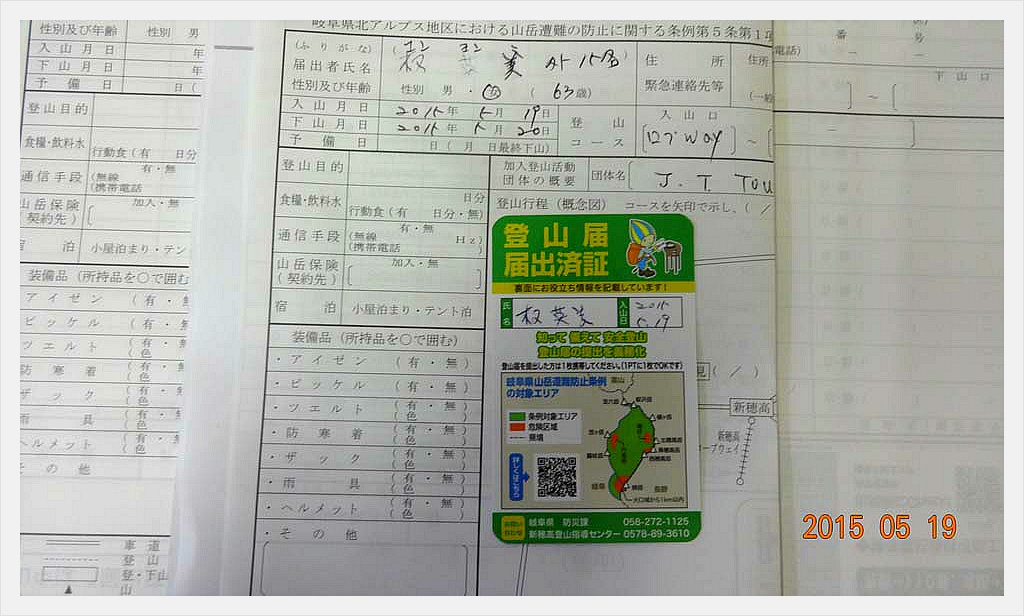 岐阜県北アルプス地区における山岳遭難の防止に関する条例第5条第1項
(ふりがな)
届出者氏名
権 英美 外15名
性別及び年齢 性別 男・女 ( 63歳)
住 所
緊急連絡先等
住所
入山月日 2015年 5月 19日
下山月日 2015年 5月 20日
予備日 日( 月 日最終下山)
登山
コース
入山口
[ロプWAY] ~ [
登山目的
加入登山活動
団体の概要
団体名
J.T. TOU
食糧・飲料水 日分
行動食(有 日分・無)
登山行程(概念図) コースを矢印で示し、( /
通信手段 有・無
(無線 Hz)
(携帯電話
山岳保険
(契約先)
加入・無
宿 泊 小屋泊まり・テント泊
装備品(所持品を○で囲む)
・アイゼン (有・無)
・ピッケル (有・無)
・ツエルト (有・無)
(色 )
・防寒着 (有・無)
(色 )
・ザック (有・無)
(色 )
・雨具 (有・無)
(色 )
・ヘルメット (有・無)
(色 )
・その他
登山届
届出済証
裏面にお役立ち情報を記載しています!
氏名 権英美
入山日 2015 5.19
知って 備えて 安全登山
登山届の提出を義務化
登山届を提出した方は1枚携帯してください。(1PTに1枚でOKです)
岐阜県山岳遭難防止条例
の対象エリア
条例対象エリア
危険区域
県境
詳しくはこちら
岐阜 長野
火口域から1km以内
お問い合わせ
岐阜県 防災課 058-272-1125
新穂高登山指導センター 0578-89-3610
新穂高
新穂高
ープウェイ
性別及び年齢 性別 男
入山月日 年
下山月日 年
予備日 日(
登山目的
食糧・飲料水
行動食(有 日分
通信手段 有・無
(無線
(携帯電話
山岳保険
(契約先)
加入・無
泊 小屋泊まり・テン
装備品(所持品を○で囲む
アイゼン (有・
ピッケル (有・
ツエルト (有・
(色
防寒着 (有・
(色
ザック (有・
(色
雨具 (有・
(色
ヘルメット (有・
(色
その他
車道
登山
登・下山
番 号
電話)
下山口
2015 05 19